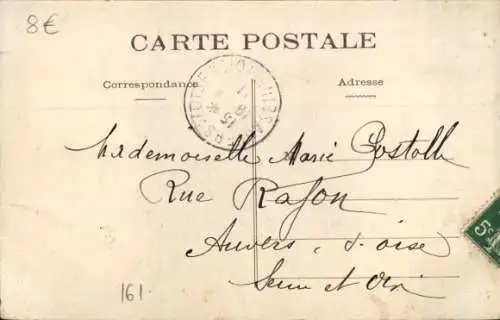 8€
CARTE POSTALE
Correspondance
Adresse
Mademoiselle Marie Postolle
Rue Rajon
Auvers s. oise
Seine et Oise
161.
5c